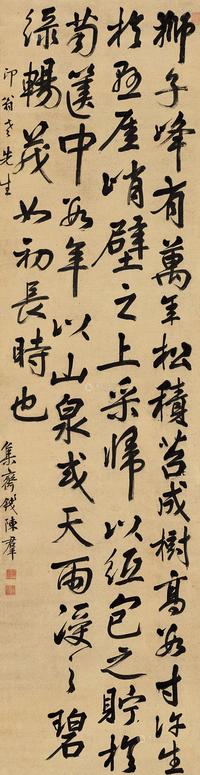 狮子峰有萬年松積苔成樹高數寸許生
於懸厓峭壁之上采歸以紙包之貯於
笥篋中數年以山泉或天雨浸之碧
綠暢茂如初長時也
印翁老先生
集齋錢陳羣